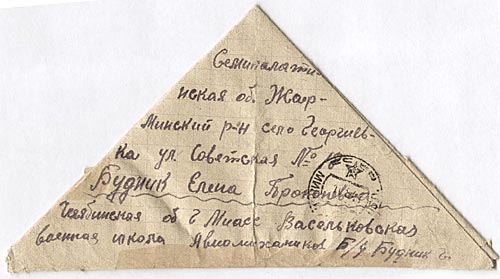 Семипалатин-
ская об. Жар-
минский р-н село Георгиев-
ка ул Советская №
Будник Елена
Челябинская об г Миасс Васольковская
военная школа Авиомихаников П/Я Будник